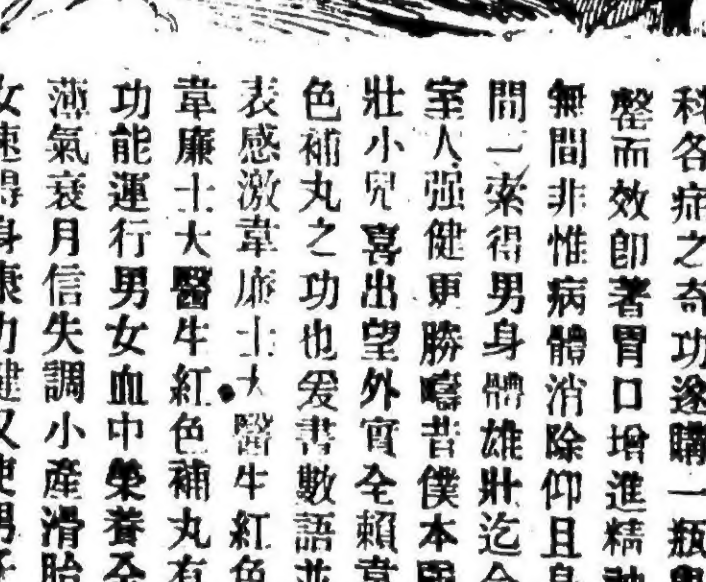 科各症之奇功遂購一瓶
罄而效卽著胃口增進精神
無間非惟病體消除仰且身
問一索得男身體雄壯迄今
室人强健更勝疇昔僕本醫
壯小兒喜出望外實全賴韋
色補丸之功也爰書數語並
表感激韋廉士大醫生紅色
韋廉士大醫生紅色補丸有
功能運行男女血中榮養全
薄氣衰月信失調小產滑胎
女速得身康力健又使男子